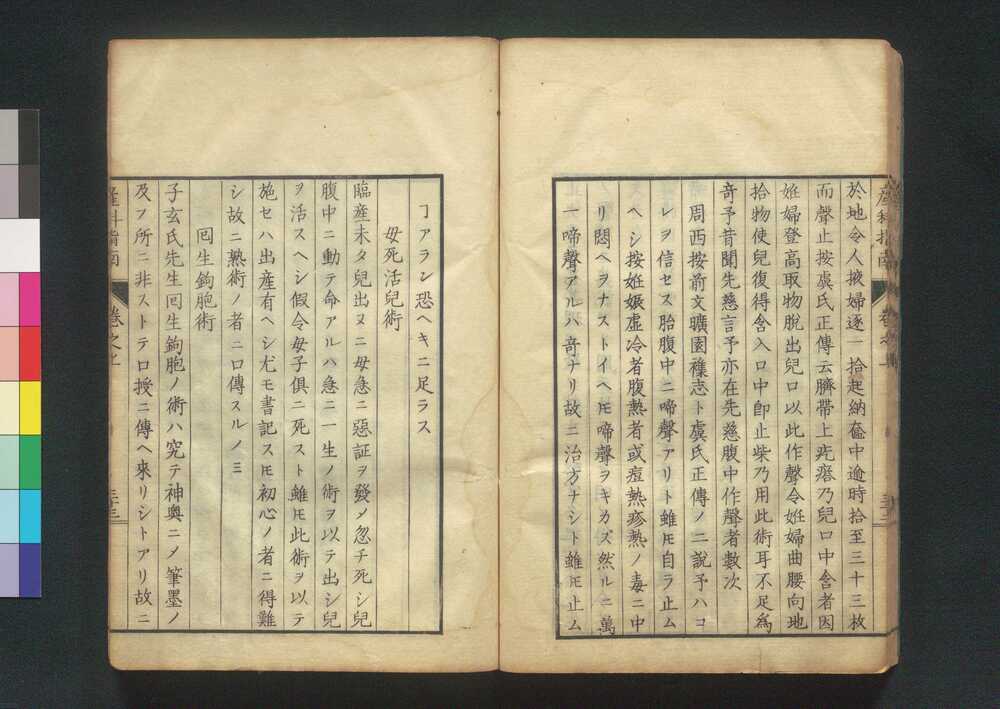 於地令人掖婦逐一拾起納奩中逾時拾至三十三枚
而聲止按虞氏正傳云臍帯上疙瘩乃兒口中含者因
姙婦登高取物脫出兒口以此作聲令姙婦曲腰向地
拾物使兒復得含入口中卽止柴乃用此術耳不足為
竒予昔聞先慈言予亦在先慈腹中作聲者數次
周西按前文曠園襍志ト虞氏正傳ノ二說予ハコ
レヲ信セス胎腹中ニ啼聲アリト雖𪜈自ラ止ム
ヘシ按姙娠虛冷者腹熱者或痘熱疹熱ノ毒ニ中
リ悶ヘヲナストイヘ𪜈啼聲ヲキカズ然ルニ萬
一啼聲アルハ竒ナリ故ニ治方ナシト雖𪜈止ム
ヿアラン恐ヘキニ足ラス
母死活兒術
臨産未タ兒出ヌニ母急ニ惡証ヲ發メ忽チ死シ兒
腹中ニ動テ命アルハ急ニ一生ノ術ヲ以テ出シ兒
ヲ活スヘシ假令母子俱ニ死スト雖𪜈此術ヲ以テ
施セハ出産有ヘシ尤モ書記ス𪜈初心ノ者ニ得難
シ故ニ熟術ノ者ニ口傳スルノミ
囘生鉤胞術
子玄氏先生囘生鉤胞ノ術ハ究テ神奧ニメ筆墨ノ
及フ所ニ非ストテ口授ニ傳ヘ來リシトアリ故ニ
産科指南
卷之上